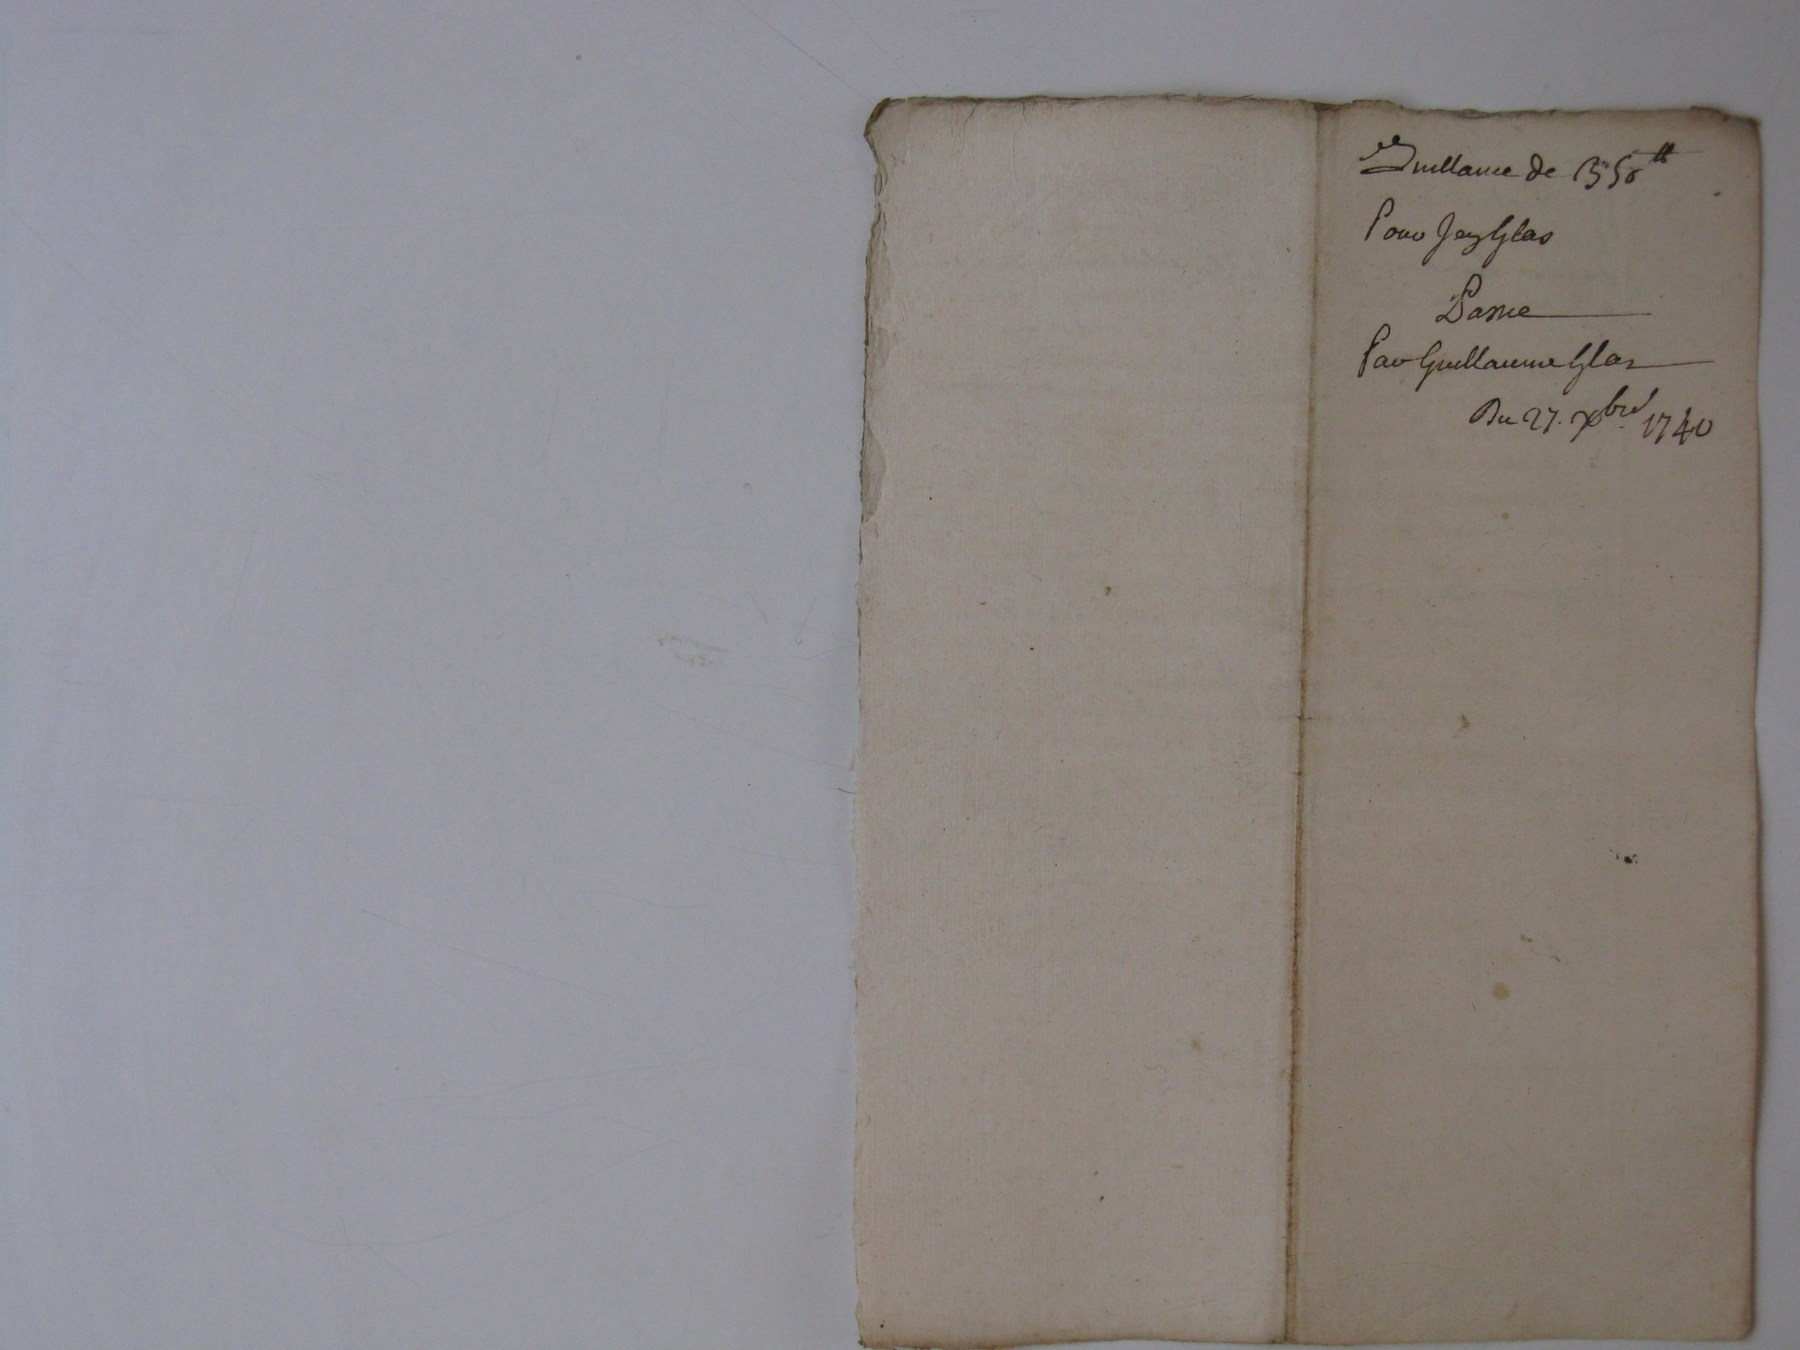 Quittance de 1550ᵗᵗ
Pour Jey Glas
Passée
Par Guillaume Glas
Du 27. xbre 1740